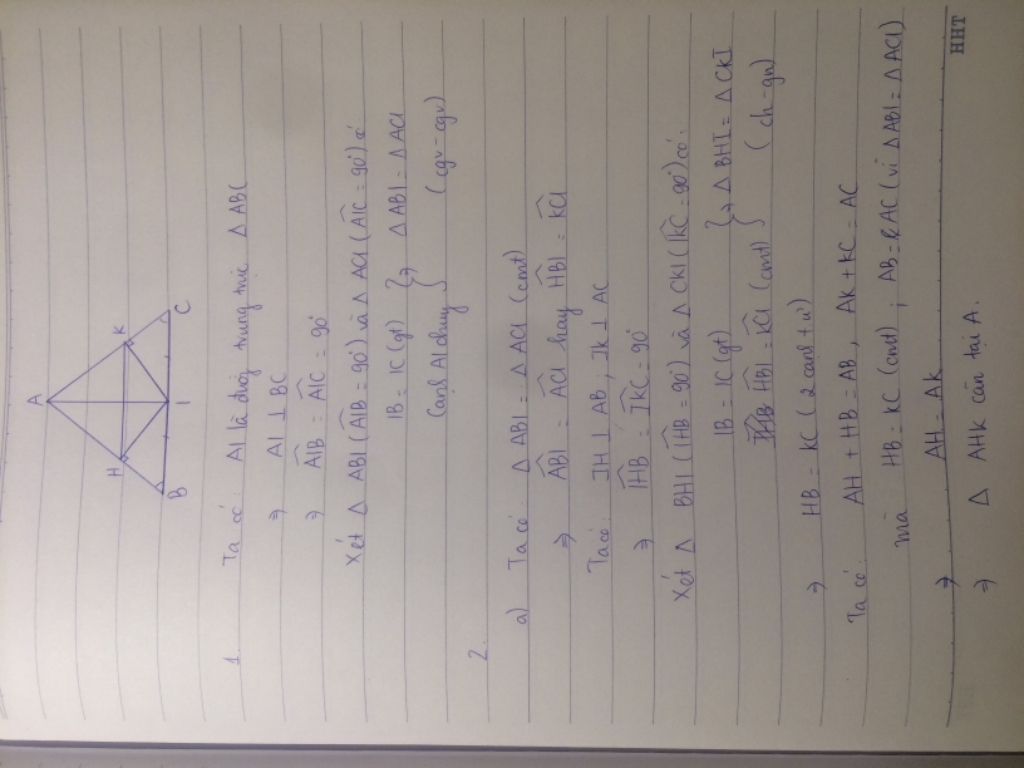 A
H
K
B
I
C
1. Ta có: AI là đường trung trực △ ABC
⇒ AI ⊥ BC
⇒ AIB = AIC = 90°
Xét △ ABI (AIB = 90°) và △ ACI (AIC = 90°) có:
IB = IC (gt) } ⇒ △ ABI = △ ACI
Cạnh AI chung } (cgv - cgv)
2.
a) Ta có: △ ABI = △ ACI (cmt)
⇒ ABI = ACI hay HBI = KCI
Ta có: IH ⊥ AB, IK ⊥ AC
⇒ IHB = IKC = 90°
Xét △ BHI (IHB = 90°) và △ CKI (IKC = 90°) có:
IB = IC (gt) } ⇒ △ BHI = △ CKI
HBI = KCI (cmt) } (ch - gn)
⇒ HB = KC (2 cạnh t.ư)
Ta có: AH + HB = AB, AK + KC = AC
mà HB = KC (cmt); AB = AC (vì △ ABI = △ ACI)
⇒ AH = AK
⇒ △ AHK cân tại A.
HHT